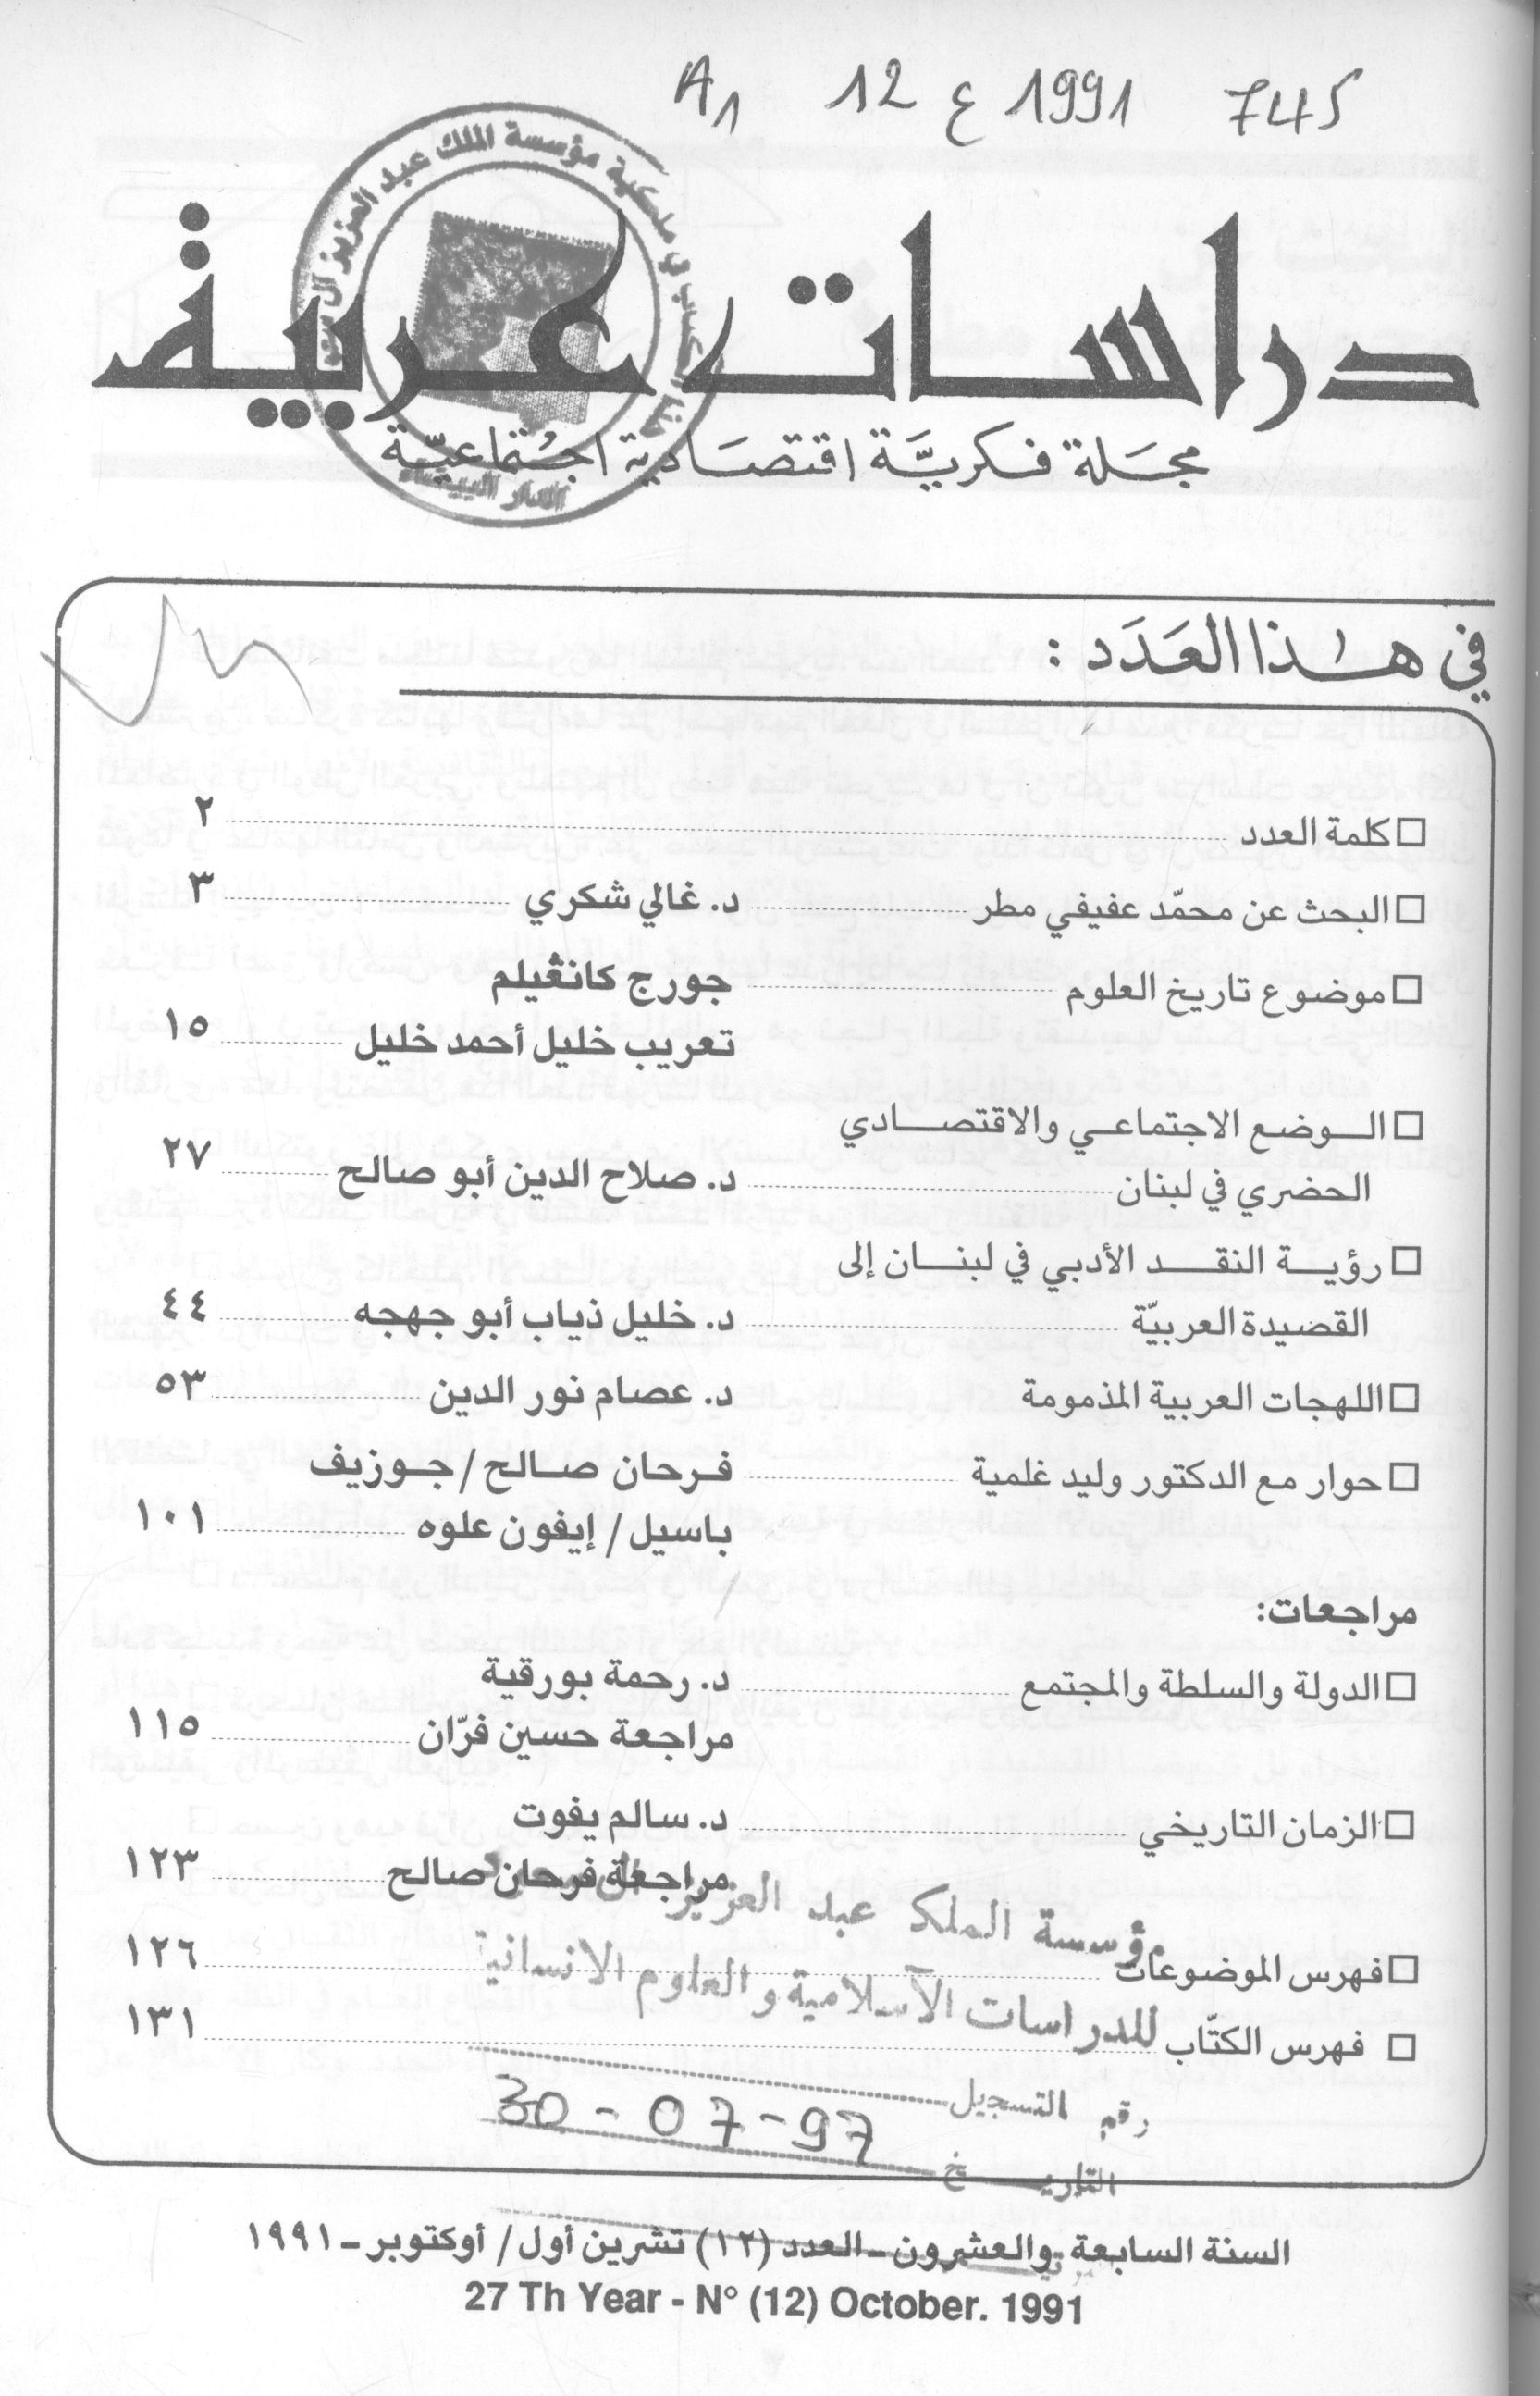 A1 12 ع 1991 745
هذا الكتاب في ملكية مؤسسة الملك عبد العزيز آل سعود
الدار البيضاء
دراسات عربية
مجلة فكريَّة اقتصَادية اجتُماعيّة
في هٰذا العَدَد :
□ كلمة العدد ٢
□ البحث عن محمّد عفيفي مطر د. غالي شكري ٣
□ موضوع تاريخ العلوم جورج كانڤيلم
تعريب خليل أحمد خليل ١٥
□ الـوضع الاجتماعي والاقتصادي
الحضري في لبنان د. صلاح الدين أبو صالح ٢٧
□ رؤية النقد الأدبي في لبنان إلى
القصيدة العربيّة د. خليل ذياب أبو جهجه ٤٤
□ اللهجات العربية المذمومة د. عصام نور الدين ٥٣
□ حوار مع الدكتور وليد غلمية فرحان صالح / جوزيف
باسيل / إيفون علوه ١٠١
مراجعات:
□ الدولة والسلطة والمجتمع د. رحمة بورقية
مراجعة حسين فرّان ١١٥
□ الزمان التاريخي د. سالم يفوت
مراجعة فرحان صالح ١٢٣
مؤسسة الملك عبد العزيز
□ فهرس الموضوعات ١٢٦
للدراسات الآسلامية والعلوم الانسانية
□ فهرس الكتّاب ١٣١
رقم التسجيل
التاريخ 30-07-97
السنة السابعة والعشرون ـ العدد (١٢) تشرين أول / أوكتوبر ـ ١٩٩١
27 Th Year - N° (12) October. 1991